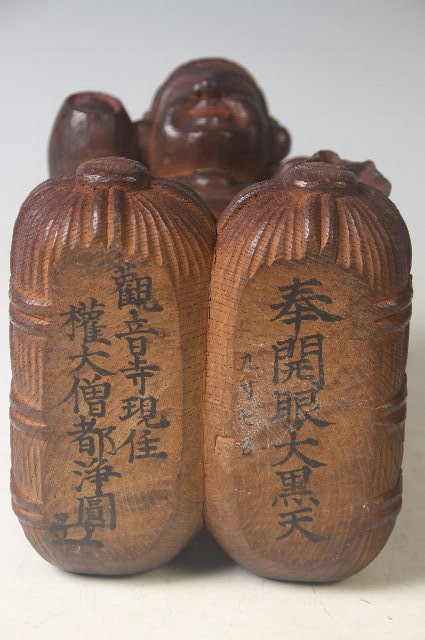 奉開眼大黒天
觀音寺現住
權大僧都淨圓